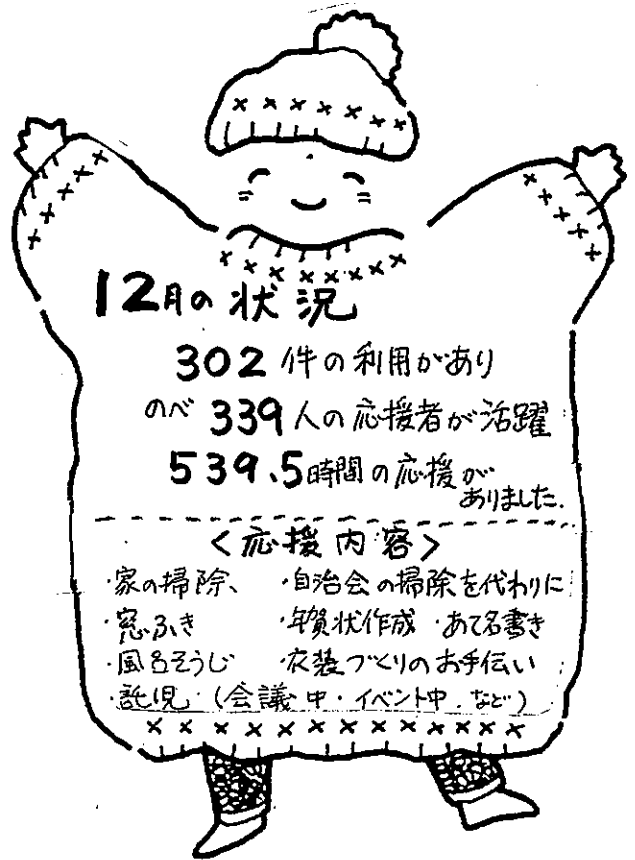 12月の状況
302件の利用があり
のべ339人の応援者が活躍
539.5時間の応援が
ありました.
<応援内容>
・家の掃除、 ・自治会の掃除を代わりに
・窓ふき ・年賀状作成 ・あて名書き
・風呂そうじ ・衣装づくりのお手伝い
・託児 (会議中・イベント中.など)